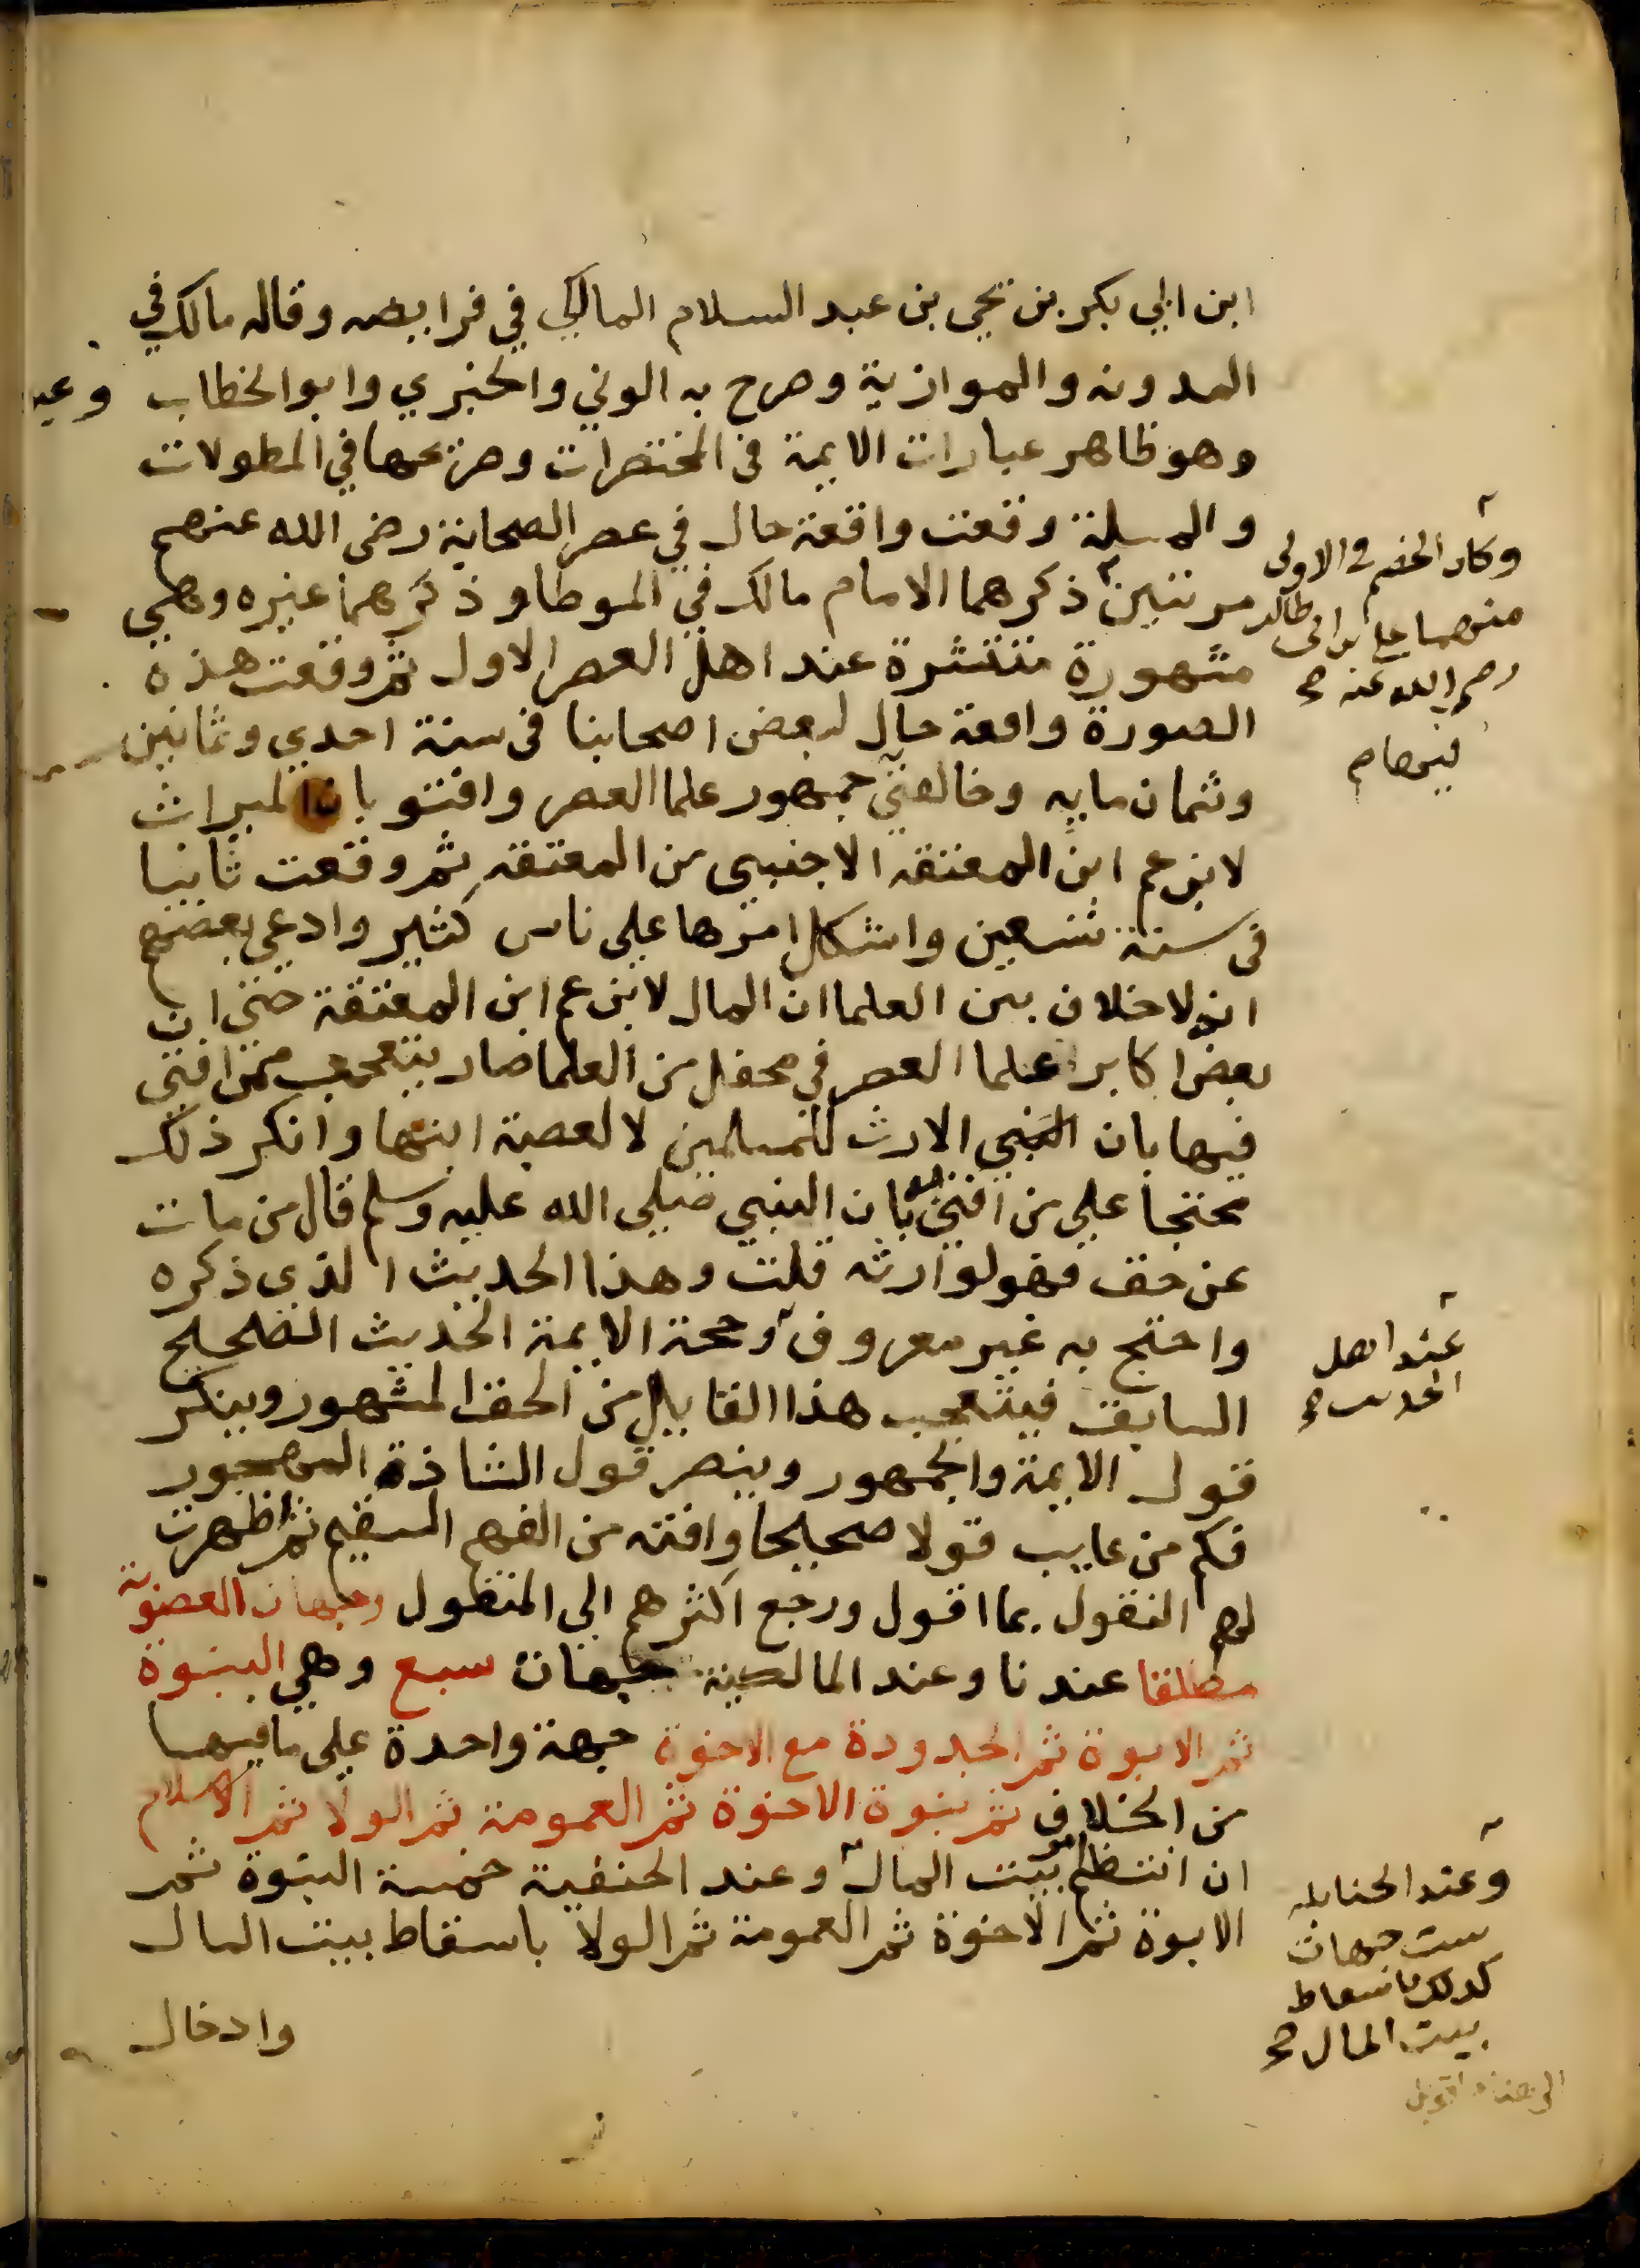 ابن ابي بكر بن يحيى بن عبد السلام المالكي في فرايضه وقاله مالك في
المدونه والموازية وصرح به الوني والخبري وابو الخطاب
وهو ظاهر عبارات الايمة في المختصرات وصريحها في المطولات
والمسلة وقعت واقعة حال في عصر الصحابة رضي الله عنهم
مرتين ذكرهما الامام مالك في الموطا وذكرهما غيره وهي
مشهورة منتشرة عند اهل العصر الاول ثم وقعت هذه
الصورة واقعة حال لبعض اصحابنا في سنة احدي وثمانين
وثمان مايه وخالفني جمهور علما العصر وافتو بان الميراث
لابن عم ابن المعتقه الاجنبي من المعتقه ثم وقعت ثانيا
في سنة تسعين واشكل امرها علي ناس كثير وادعي بعضهم
انه لا خلاف بين العلما ان المال لابن عم ابن المعتقة حتي ان
بعض اكابر علما العصر في محفل من العلما صار يتعجب ممن افتي
فيها بان الارث للمسلمين لا لعصبة ابنها وانكر ذلك
محتجا علي من افتي بان النبي صلي الله عليه وسلم قال من مات
عن حق فهو لوارثه قلت وهذا الحديث الذي ذكره
واحتج به غير معروف وحجة الايمة الحديث الصحيح
السابق فيتعجب هذا القايل من الحق المشهور وينكر
قول الايمة والجمهور وينصر قول الشاذة المهجور
فكم من عايب قولا صحيحا وافته من الفهم السقيم ثم اظهرت
لهم النقول بما اقول ورجع اكثرهم الي المنقول وجهات العصوبة
مطلقا عندنا وعند المالكية جهات سبع وهي البنوة
ثم الابوة ثم الجدودة مع الاخوة جهة واحدة علي ما فيها
من الخلاف ثم بنوة الاخوة ثم العمومة ثم الولا ثم الاسلام
ان انتظم بيت المال وعند الحنفية خمسة البنوة ثم
الابوة ثم الاخوة ثم العمومة ثم الولا باسقاط بيت المال
وادخال
وكان الخصم في الاولى
منهما علي بن ابي طالب
رضي الله عنه صح
عند اهل
الحديث صح
وعند الحنابله
ست جهات
كذلك باسقاط
بيت المال صح